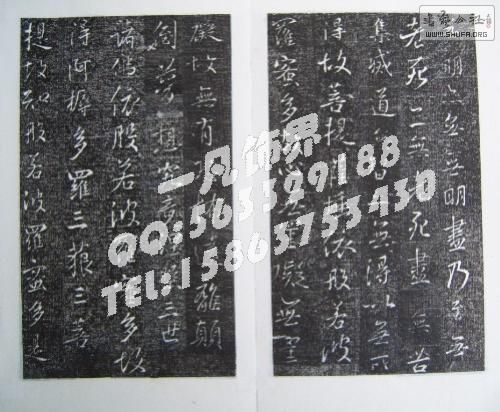 書法公社
WWW.SHUFA.ORG
明亦無無明盡乃至無
老死亦無老死盡無苦
集滅道無智亦無得以無所
得故菩提薩埵依般若波
羅蜜多故心無罣礙無罣
礙故無有恐怖遠離顛
倒夢想究竟涅槃三世
諸佛依般若波羅蜜多故
得阿耨多羅三藐三菩
提故知般若波羅蜜多是
一凡饰界
QQ:563399188
TEL:15863753430